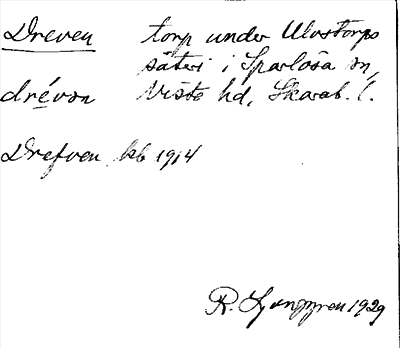 Dreven torp under Ulvstorps
säteri i Sparlösa sn,
drévan Viste hd, Skarab. l.
Drefven kb 1914
R. Ljunggren 1929